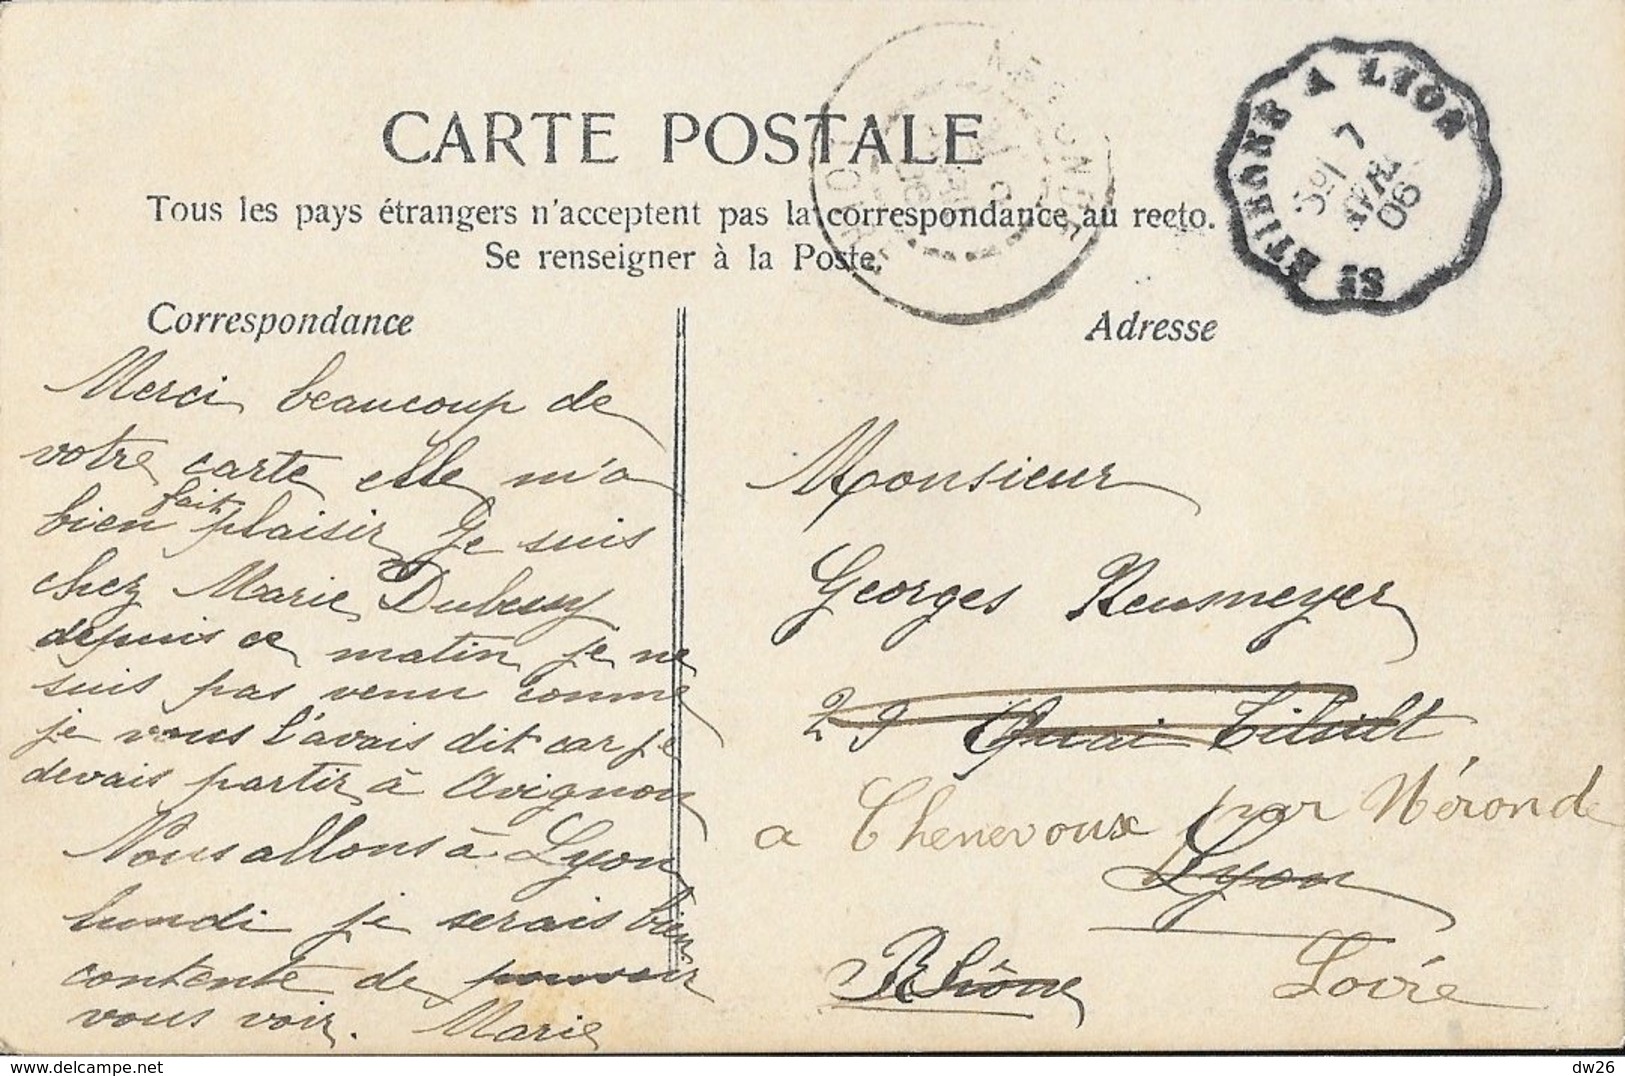 CARTE POSTALE
Tous les pays étrangers n'acceptent pas la correspondance au recto.
Se renseigner à la Poste.
Correspondance
Merci beaucoup de
votre carte elle m'a
bien fait plaisir Je suis
chez Marie Dubessy
depuis ce matin je ne
suis pas venu comme
je vous l'avais dit car je
devais partir à Avignon
Nous allons à Lyon
lundi je serais bien
contente de pouvoir
vous voir. Marie
Adresse
Monsieur
Georges Neusmeyer
29 Quai Tilsitt
a Chenevoux par Néronde
Lyon
Rhône
Loire
ST ETIENNE A LYON
7
AVRIL
06
NERONDE
LOIRE
dw26